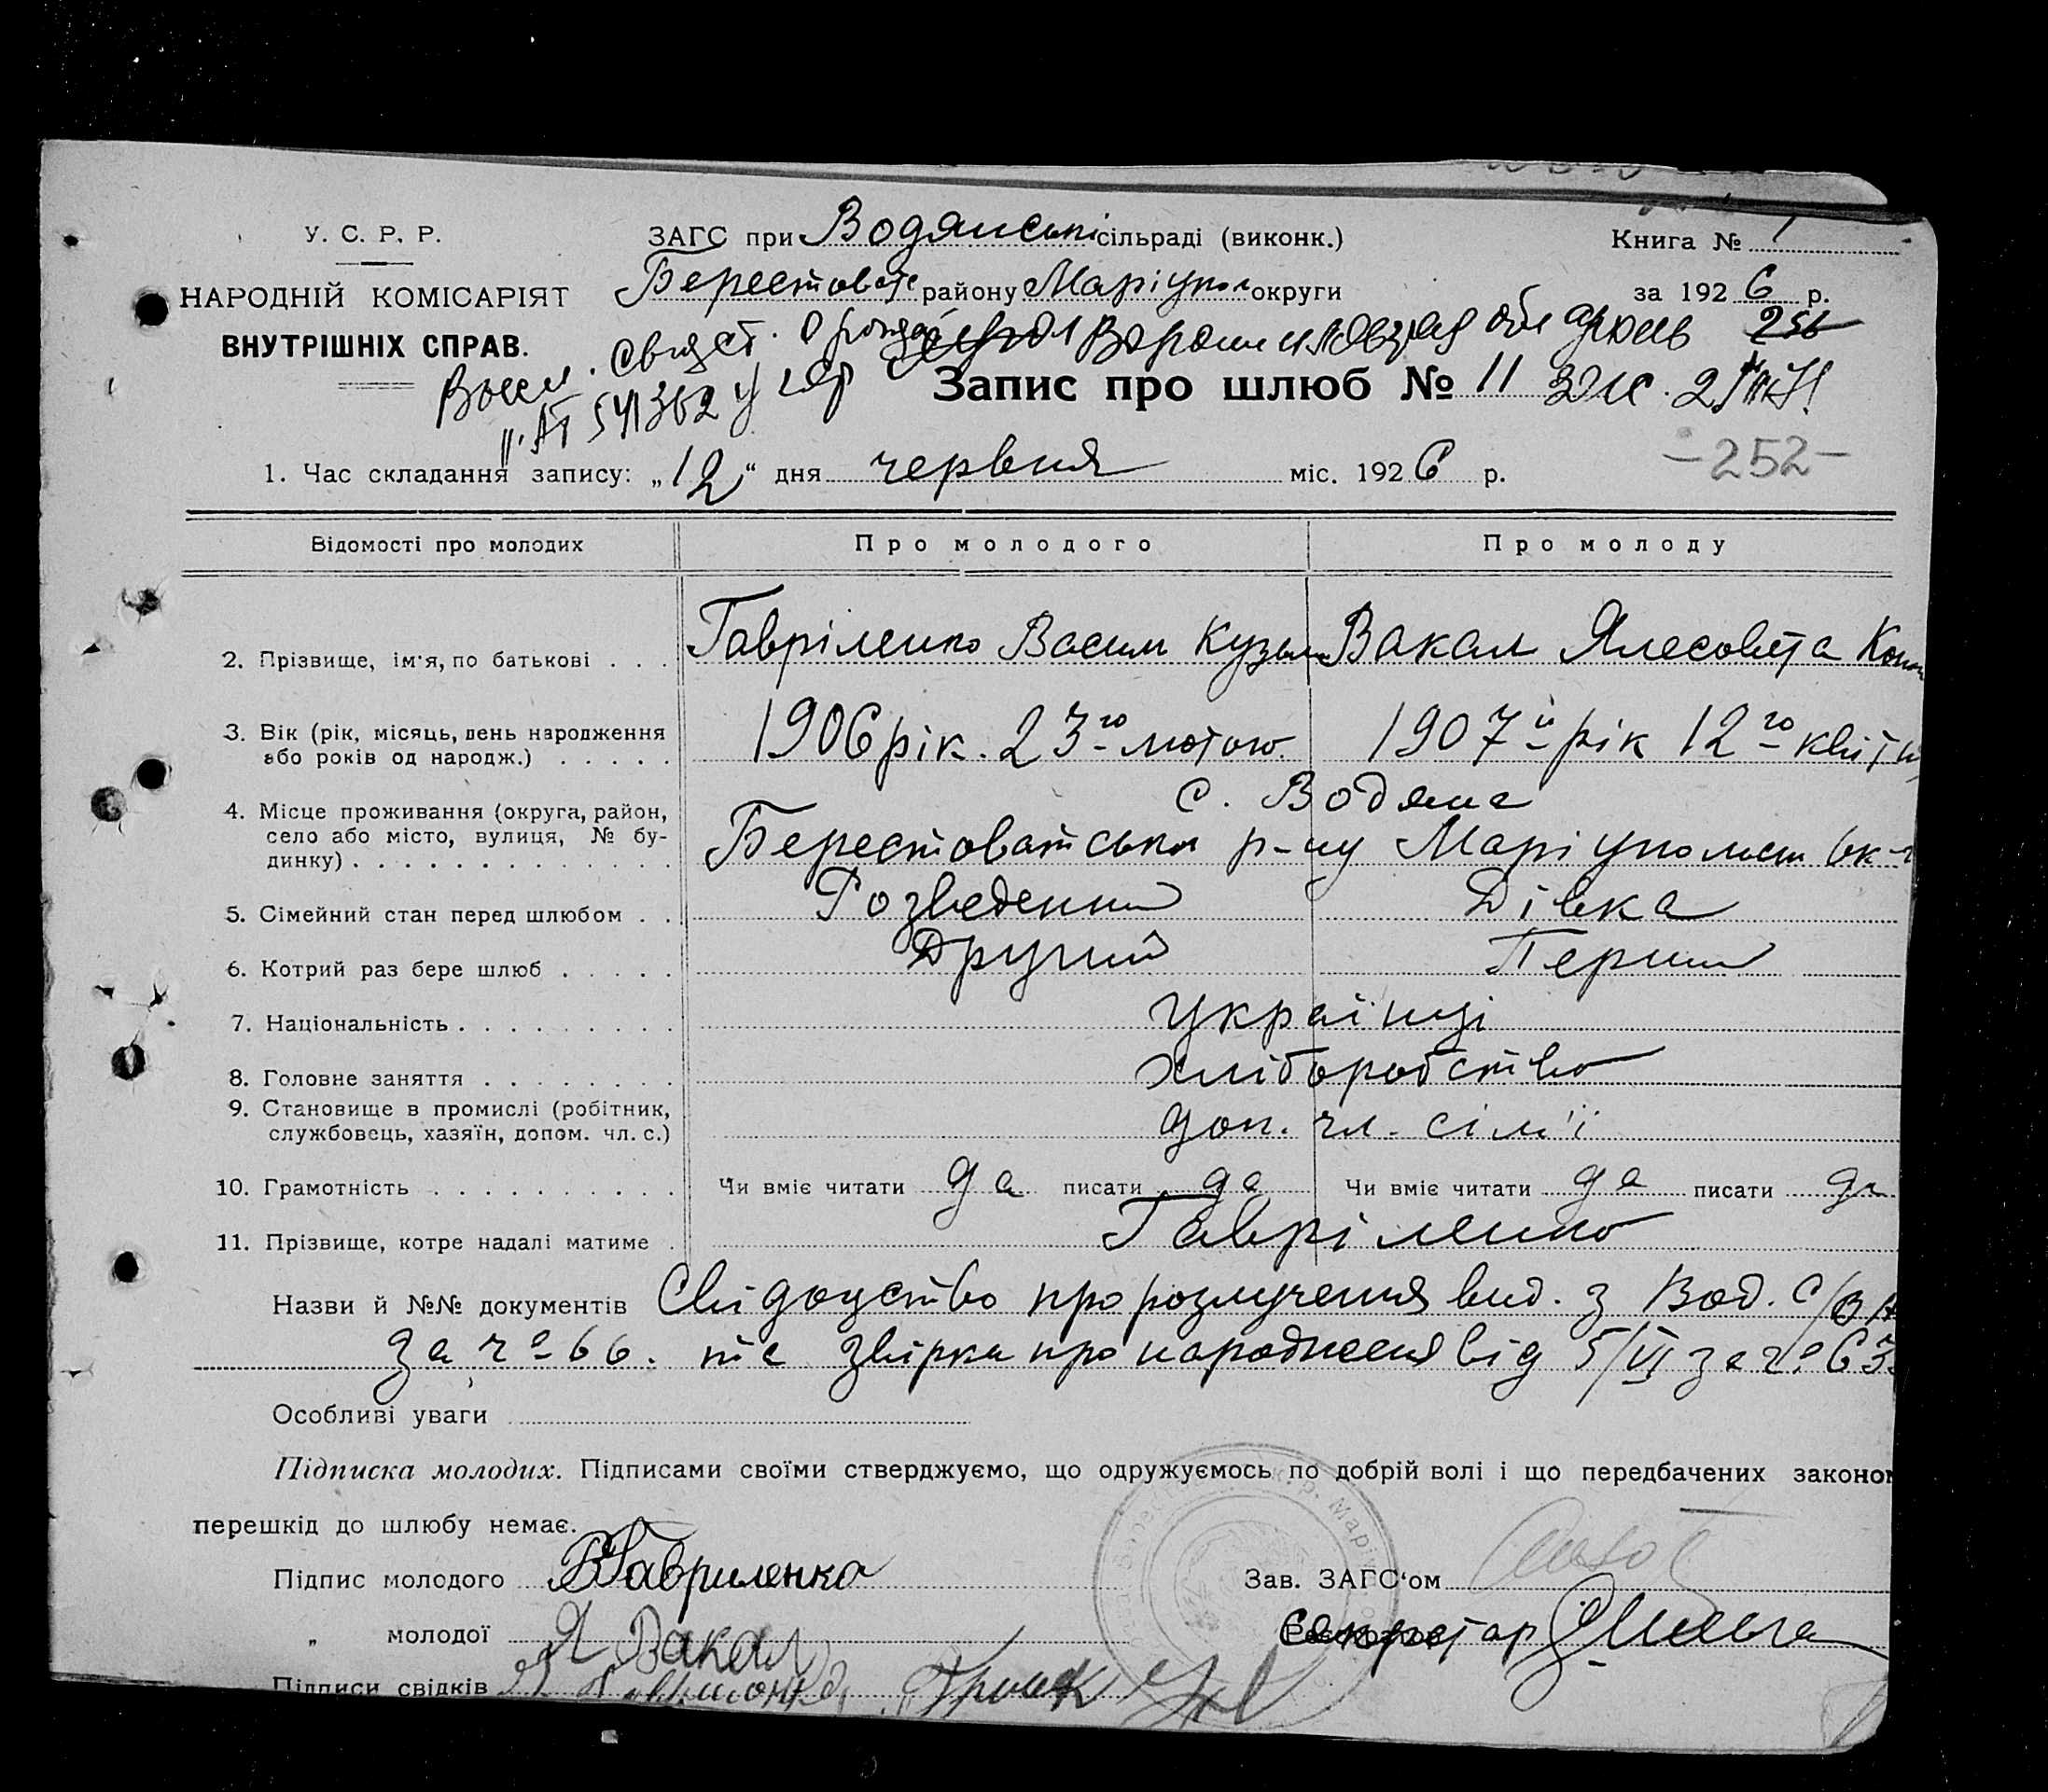 У. С. Р. Р.
ЗАГС при Водянські сільраді (виконк.)
Книга № 1
НАРОДНІЙ КОМІСАРІЯТ
Берестоват району Маріупол округи
за 1926 р.
ВНУТРІШНІХ СПРАВ.
256
Запис про шлюб № 11
АТ 541362
-252-
1. Час складання запису: „12“ дня червня міс. 1926 р.
Відомості про молодих
Про молодого
Про молоду
2. Прізвище, ім'я, по батькові . . .
Гавріленко Васил Кузьм
Вакал Ялесовета Кон
3. Вік (рік, місяць, день народження або років од народж.) . . . . .
1906 рік. 23го лютого.
1907й рік 12го квітн
4. Місце проживання (округа, район, село або місто, вулиця, № будинку) . . . . . . . . . . . . . .
с. Водяна
Берестоватськи р-ну Маріуполсьт ок-
5. Сімейний стан перед шлюбом . .
Розведений
Дівка
6. Котрий раз бере шлюб . . . . .
Другий
Перший
7. Національність . . . . . . . . .
Українці
8. Головне заняття . . . . . . . .
хліборобство
9. Становище в промислі (робітник, службовець, хазяїн, допом. чл. с.)
доп. чл. сім'ї
10. Грамотність . . . . . . . . . .
Чи вміє читати да писати да
Чи вміє читати да писати да
11. Прізвище, котре надалі матиме .
Гавріленко
Назви й №№ документів Свідоцство про розлучення вид. з Вод. с/
за ч° 66. та звірка про народження від 5/VI за ч° 63
Особливі уваги
Підписка молодих. Підписами своїми стверджуємо, що одружуємось по добрій волі і що передбачених законом
перешкід до шлюбу немає.
Підпис молодого В Гавриленко
Зав. ЗАГС'ом
„ молодої Я Вакал
Секретар
Підписи свідків